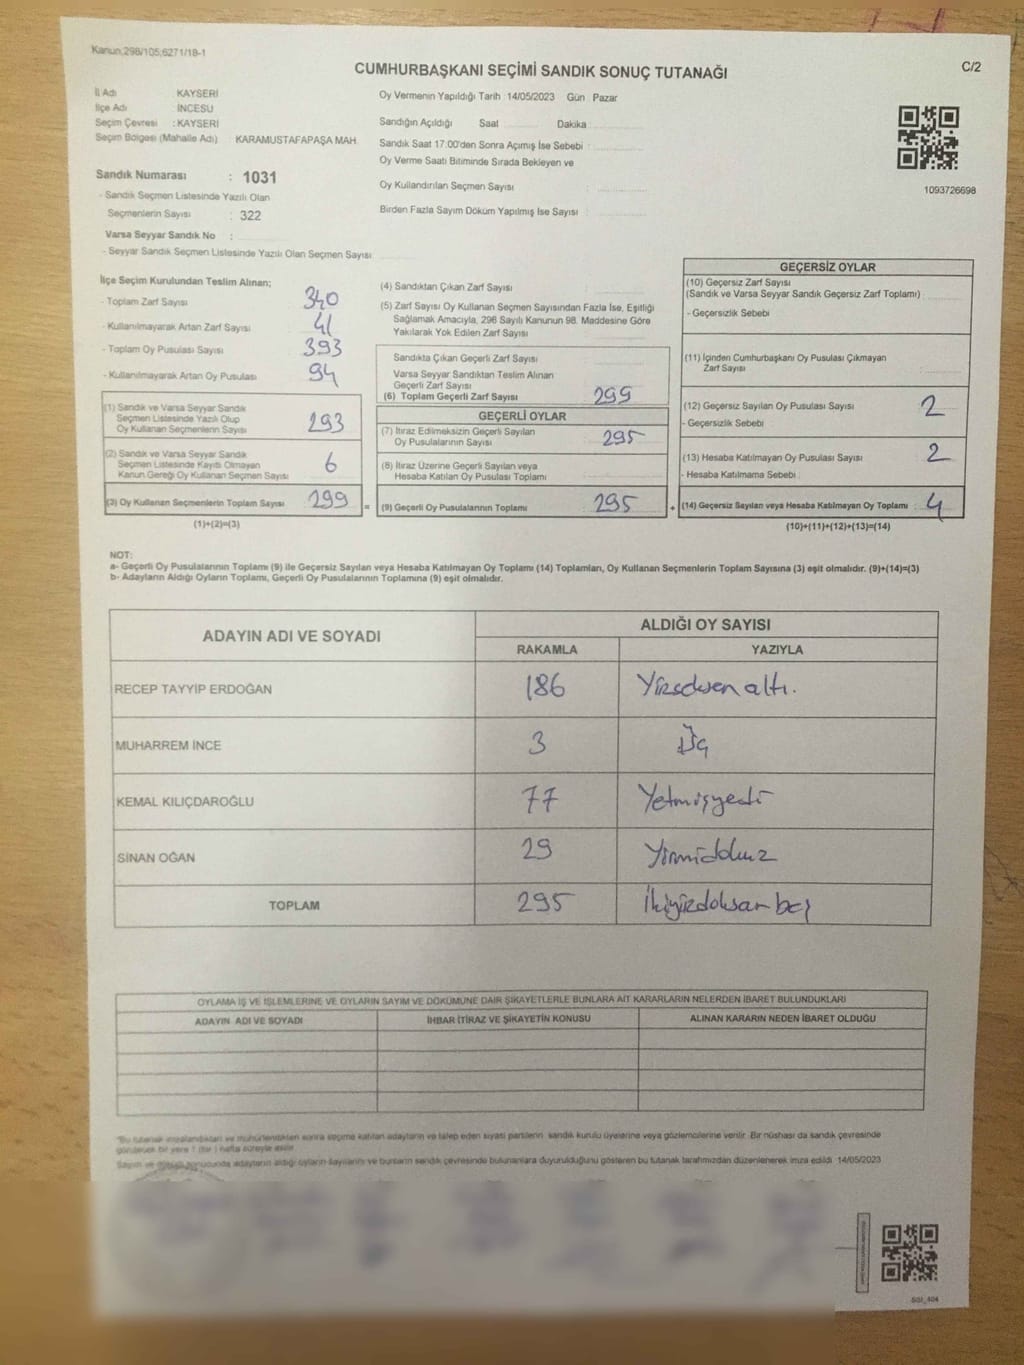 Kanun:298/105;6271/18-1
CUMHURBAŞKANI SEÇİMİ SANDIK SONUÇ TUTANAĞI
C/2
İl Adı KAYSERİ
İlçe Adı İNCESU
Seçim Çevresi : KAYSERİ
Seçim Bölgesi (Mahalle Adı) KARAMUSTAFAPAŞA MAH.
Sandık Numarası : 1031
- Sandık Seçmen Listesinde Yazılı Olan
Seçmenlerin Sayısı : 322
Varsa Seyyar Sandık No :
- Seyyar Sandık Seçmen Listesinde Yazılı Olan Seçmen Sayısı:
Oy Vermenin Yapıldığı Tarih :14/05/2023 Gün : Pazar
Sandığın Açıldığı Saat Dakika :
Sandık Saat 17:00'den Sonra Açımış İse Sebebi :
Oy Verme Saati Bitiminde Sırada Bekleyen ve
Oy Kullandırılan Seçmen Sayısı :
Birden Fazla Sayım Döküm Yapılmış İse Sayısı :
1093726698
İlçe Seçim Kurulundan Teslim Alınan;
- Toplam Zarf Sayısı : 340
- Kullanılmayarak Artan Zarf Sayısı : 41
- Toplam Oy Pusulası Sayısı : 393
- Kullanılmayarak Artan Oy Pusulası : 94
(1) Sandık ve Varsa Seyyar Sandık
Seçmen Listesinde Yazılı Olup
Oy Kullanan Seçmenlerin Sayısı : 293
(2) Sandık ve Varsa Seyyar Sandık
Seçmen Listesinde Kayıtlı Olmayan
Kanun Gereği Oy Kullanan Seçmen Sayısı : 6
(3) Oy Kullanan Seçmenlerin Toplam Sayısı : 299
(1)+(2)=(3)
(4) Sandıktan Çıkan Zarf Sayısı :
(5) Zarf Sayısı Oy Kullanan Seçmen Sayısından Fazla İse, Eşitliği
Sağlamak Amacıyla, 298 Sayılı Kanunun 98. Maddesine Göre
Yakılarak Yok Edilen Zarf Sayısı :
Sandıkta Çıkan Geçerli Zarf Sayısı :
Varsa Seyyar Sandıktan Teslim Alınan
Geçerli Zarf Sayısı :
(6) Toplam Geçerli Zarf Sayısı : 299
GEÇERLİ OYLAR
(7) İtiraz Edilmeksizin Geçerli Sayılan
Oy Pusulalarının Sayısı : 295
(8) İtiraz Üzerine Geçerli Sayılan veya
Hesaba Katılan Oy Pusulası Toplamı :
= (9) Geçerli Oy Pusulalarının Toplamı : 295
GEÇERSİZ OYLAR
(10) Geçersiz Zarf Sayısı
(Sandık ve Varsa Seyyar Sandık Geçersiz Zarf Toplamı) :
- Geçersizlik Sebebi
(11) İçinden Cumhurbaşkanı Oy Pusulası Çıkmayan
Zarf Sayısı :
(12) Geçersiz Sayılan Oy Pusulası Sayısı : 2
- Geçersizlik Sebebi
(13) Hesaba Katılmayan Oy Pusulası Sayısı : 2
- Hesaba Katılmama Sebebi
+ (14) Geçersiz Sayılan veya Hesaba Katılmayan Oy Toplamı : 4
(10)+(11)+(12)+(13)=(14)
NOT:
a- Geçerli Oy Pusulalarının Toplamı (9) ile Geçersiz Sayılan veya Hesaba Katılmayan Oy Toplamı (14) Toplamları, Oy Kullanan Seçmenlerin Toplam Sayısına (3) eşit olmalıdır. (9)+(14)=(3)
b- Adayların Aldığı Oyların Toplamı, Geçerli Oy Pusulalarının Toplamına (9) eşit olmalıdır.
ADAYIN ADI VE SOYADI ALDIĞI OY SAYISI
RAKAMLA YAZIYLA
RECEP TAYYİP ERDOĞAN 186 Yüzseksen altı.
MUHARREM İNCE 3 Üç
KEMAL KILIÇDAROĞLU 77 Yetmişyedi
SİNAN OĞAN 29
TOPLAM 295 İkiyüzdoksan beş
OYLAMA İŞ VE İŞLEMLERİNE VE OYLARIN SAYIM VE DÖKÜMÜNE DAİR ŞİKAYETLERLE BUNLARA AİT KARARLARIN NELERDEN İBARET BULUNDUKLARI
ADAYIN ADI VE SOYADI İHBAR İTİRAZ VE ŞİKAYETİN KONUSU ALINAN KARARIN NEDEN İBARET OLDUĞU
*Bu tutanak imzalandıktan ve mühürlendikten sonra seçime katılan adayların ve talep eden siyasi partilerin sandık kurulu üyelerine veya gözlemcilerine verilir. Bir nüshası da sandık çevresinde
Sayım ve döküm sonucunda adayların aldığı oyların sayılarını ve bunların sandık çevresinde bulunanlara duyurulduğunu gösteren bu tutanak tarafımızdan düzenlenerek imza edildi. 14/05/2023